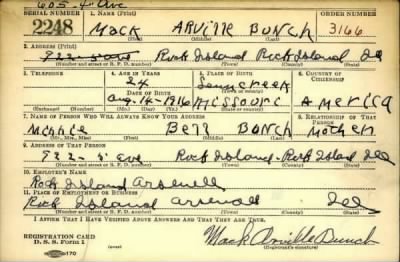 605-4" Ave
SERIAL NUMBER 1. NAME (Print) ORDER NUMBER
2248 Mack ARVille BUNCH 3166
(First) (Middle) (Last)
2. ADDRESS (Print)
Rock Island Rock Island Ill
(Number and street or R. F. D. number) (Town) (County) (State)
3. TELEPHONE 4. AGE IN YEARS 5. PLACE OF BIRTH 6. COUNTRY OF CITIZENSHIP
24
DATE OF BIRTH (Town or county)
Aug. 14-1916 Missouri America
(Exchange) (Number) (Mo.) (Day) (Yr.) (State or country)
7. NAME OF PERSON WHO WILL ALWAYS KNOW YOUR ADDRESS 8. RELATIONSHIP OF THAT PERSON
Minnie Bell Bunch Mother
(Mr., Mrs., Miss) (First) (Middle) (Last)
9. ADDRESS OF THAT PERSON
Ave Rock Island Rock Island Ill
(Number and street or R. F. D. number) (Town) (County) (State)
10. EMPLOYER'S NAME
Rock Island Arsenell
11. PLACE OF EMPLOYMENT OR BUSINESS
Rock Island Arsenall Ill
(Number and street or R. F. D. number) (Town) (County) (State)
I AFFIRM THAT I HAVE VERIFIED ABOVE ANSWERS AND THAT THEY ARE TRUE.
REGISTRATION CARD
D. S. S. Form 1 Mack Arville Bunch
(Registrant's signature)